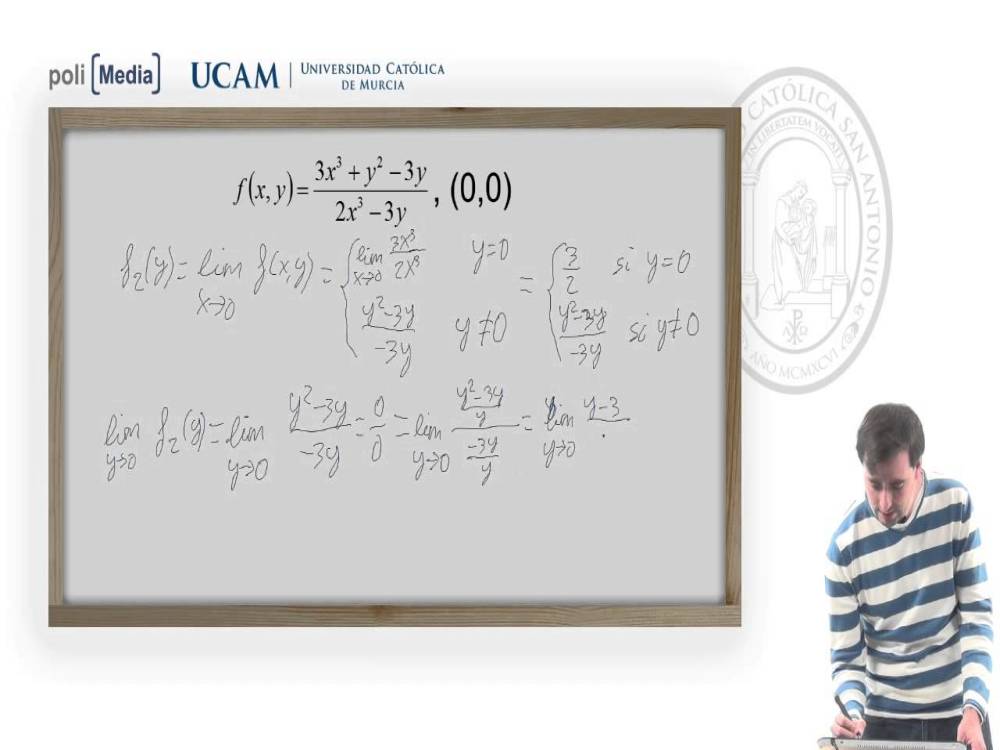 poli [Media] UCAM | UNIVERSIDAD CATÓLICA
DE MURCIA
CATÓLICA SAN ANTONIO
IN LIBERTATEM VOCATI
AÑO MCMXCVI
f(x, y) = (3x³ + y² − 3y)/(2x³ − 3y) , (0,0)
f₂(y) = lim_{x→0} f(x,y) = { lim_{x→0} 3x³/2x³ y=0 = { 3/2 si y=0
(y²−3y)/(−3y) y≠0 (y²−3y)/(−3y) si y≠0
lim_{y→0} f₂(y) = lim_{y→0} (y²−3y)/(−3y) = 0/0 = lim_{y→0} ((y²−3y)/y)/((−3y)/y) = lim_{y→0} (y−3)/